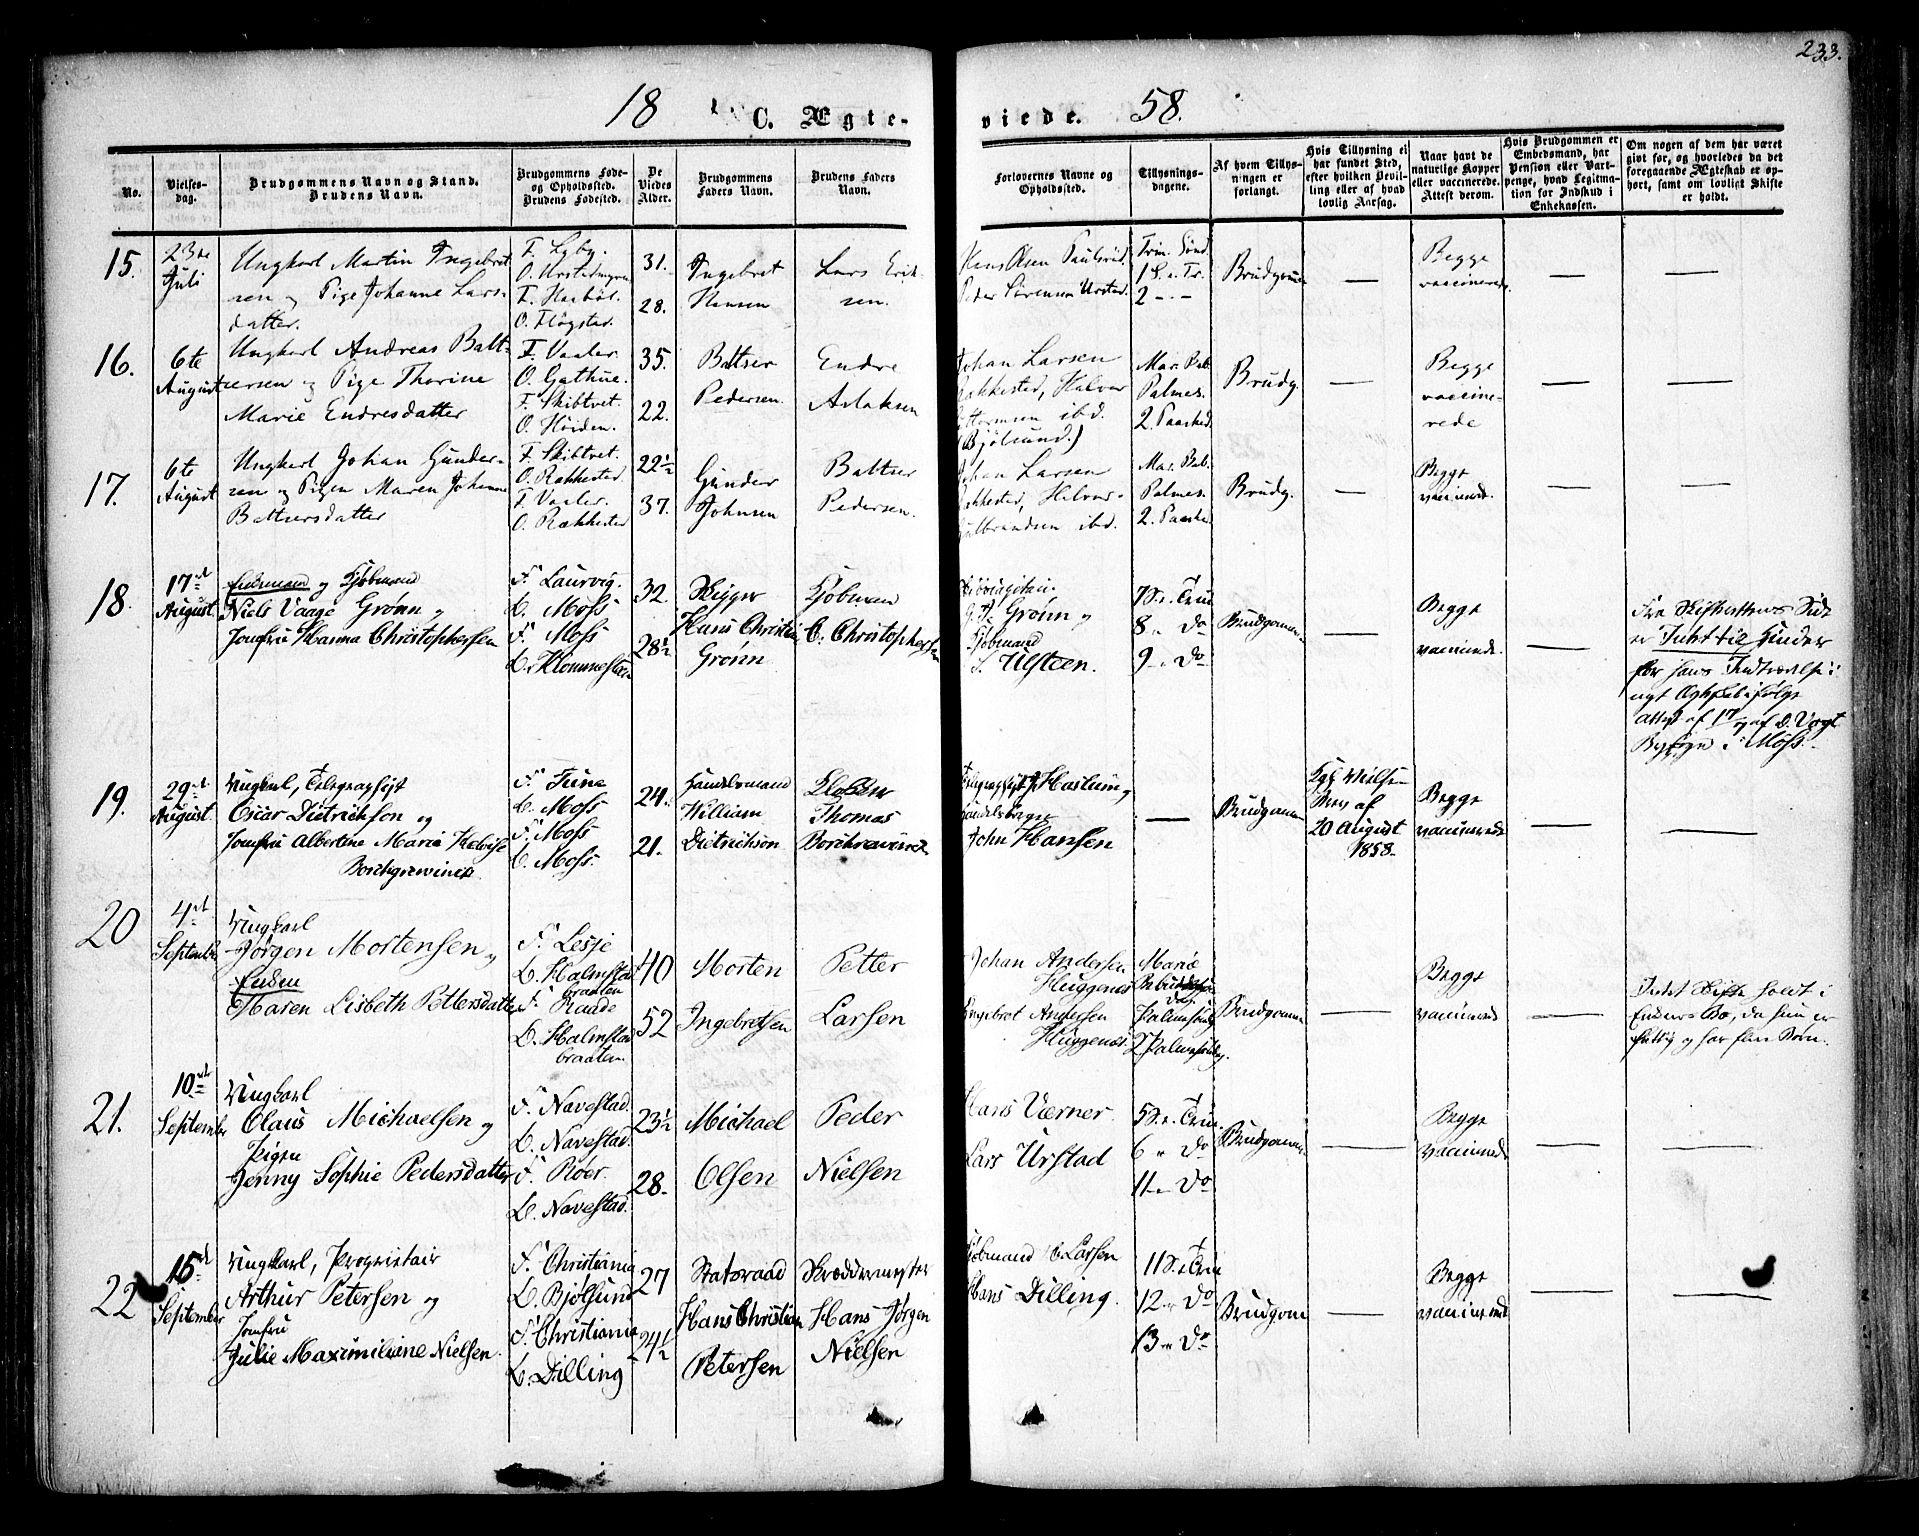 233.
18 C. Ægte-
viede. 58.
No.
Vielses-
dag.
Brudgommens Navn og Stand.
Brudens Navn.
Brudgommens Føde-
og Opholdssted.
Brudens Fødested.
De
Viedes
Alder.
Brudgommens
Faders Navn.
Brudens Faders
Navn.
Forlovernes Navne og
Opholdssted.
Tillysnings-
dagene.
Af hvem Tillys-
ningen er
forlangt.
Hvis Tillysning ei
har fundet Sted,
efter hvilken Bevil-
ling eller af hvad
lovlig Aarsag.
Naar havt de
naturlige Kopper
eller vaccinerede.
Attest derom.
Hvis Brudgommen er
Embedsmand, har
Pension eller Vart-
penge, hvad Legitima-
tion for Indskud i
Enkekassen.
Om nogen af dem har været
gift før, og hvorledes da det
foregaaende Ægteskab er op-
hørt, samt om lovligt Skifte
er holdt.
15.
23de
Juli
Ungkarl Martin Ingebret
sen og Pige Johanne Lars-
datter.
F. Lyby.
O. Urstadmyren
F. Haabøl.
O. Fløgstad.
31.
28.
Ingebret
Hansen
Lars Erik-
sen.
Hans Olsen Paulsrød
Peder Sørensen Urstad
Trin. Sønd.
1 S. e. Tr.
2 - - -
Brudgom
—
Begge
vaccinerede.
—
—
16.
6te
August
Ungkarl Andreas Balt-
sersen og Pige Thorine
Marie Endresdatter
F. Vaaler.
O. Gathue.
F. Skibtvet.
O. Høiden.
35.
22.
Baltser
Pedersen.
Endre
Aslaksen
Johan Larsen
Rakkestad, Halvor
ibd.
(Bjølsund.)
Mar. Beb.
Palmes.
2. Paasked.
Brudg.
—
Begge
vaccine-
rede
—
—
17.
6te
August
Ungkarl Johan Gunder-
sen og Pigen Maren Johanne
Baltsersdatter
F. Skibtvet.
O. Rakkestad
F. Vaaler.
O. Rakkestad
22½
37.
Gunder
Johnsen
Baltser
Pedersen.
Johan Larsen
Rakkestad, Halvor
Gulbrandsen ibd.
Mar. Beb.
Palmes.
2. Paasked.
Brudg.
—
Begge
vaccinerede.
—
—
18.
17de
August
Enkemand og Kjøbmand
Niels Vaage Grønn og
Jomfru Hanna Christophersen
F. Laurvig.
O. Moss
F. Moss
O. Klommesteen
32.
28½
Skipper
Hans Christian
Grønn
Kjøbmand
C. Christophersen
Grønn og
Kjøbmand
S. Ulsteen.
7 S. e. Trin
8 " Do
9 - Do
Brudgommen
—
Begge
vaccinerede.
—
Fra Skifterettens Side
er Intet til Hinder
for hans Indtrædelse i
nyt Ægteskab ifølge
Attest af 17/7 af D. Vogt
Byfoged i Moss.
19.
29de
August
Ungkarl, Telegraphist
Oscar Dietrichson og
Jomfru Albertine Maria Helvise
Borchgrewinck
F. Tune
O. Moss
F. Moss
O. Moss.
24.
21.
Handelsmand
William
Dietrichson
Thomas
Borchgrevinck
Haslum og
John Hansen
—
Brudgommen
Kgl Vielses-
Brev af
20 August
1858.
Begge
vaccinerede
—
—
20
4de
September
Ungkarl
Jørgen Mortensen og
Enken
Maren Lisbeth Pettersdatter
F. Lesje
O. Halmstad
braaten
F. Raade
O. Halmstad
braaten.
40
52
Morten
Ingebretsen
Petter
Larsen
Johan Andersen
Huggenes
Engebret Andersen
Huggenes.
Mariæ
Bebudelses
dag
Palmesøndag
2 Palmesøndag.
Brudgommen
—
Begge
vaccinerede
—
Intet Skifte holdt i
Enkens Bo, da hun er
fattig og har flere Børn.
21.
10de
September
Ungkarl
Olaus Michaelsen og
Pigen
Jenny Sophie Pedersdatter
F. Navestad.
O. Navestad.
F. Roer.
O. Navestad.
23½
28.
Michael
Olsen
Peder
Nielsen
Hans Værner
Lars Urstad
5 S. e. Trin.
6 " Do
11 - Do
Brudgommen
—
Begge
vaccinerede
—
—
22
15de
September
Ungkarl, Proprietair
Arthur Petersen og
Jomfru
Julie Maximiliane Nielsen.
F. Christiania
O. Bjølsund
F. Christiania
O. Dilling
27
24½
Statsraad
Hans Christian
Petersen
Skræddermester
Hans Jørgen
Nielsen
Kjøbmand C Larsen
Hans Dilling.
11 S. e. Trin
12 - Do
13 - Do
Brudgom
—
Begge
vaccinerede
—
—